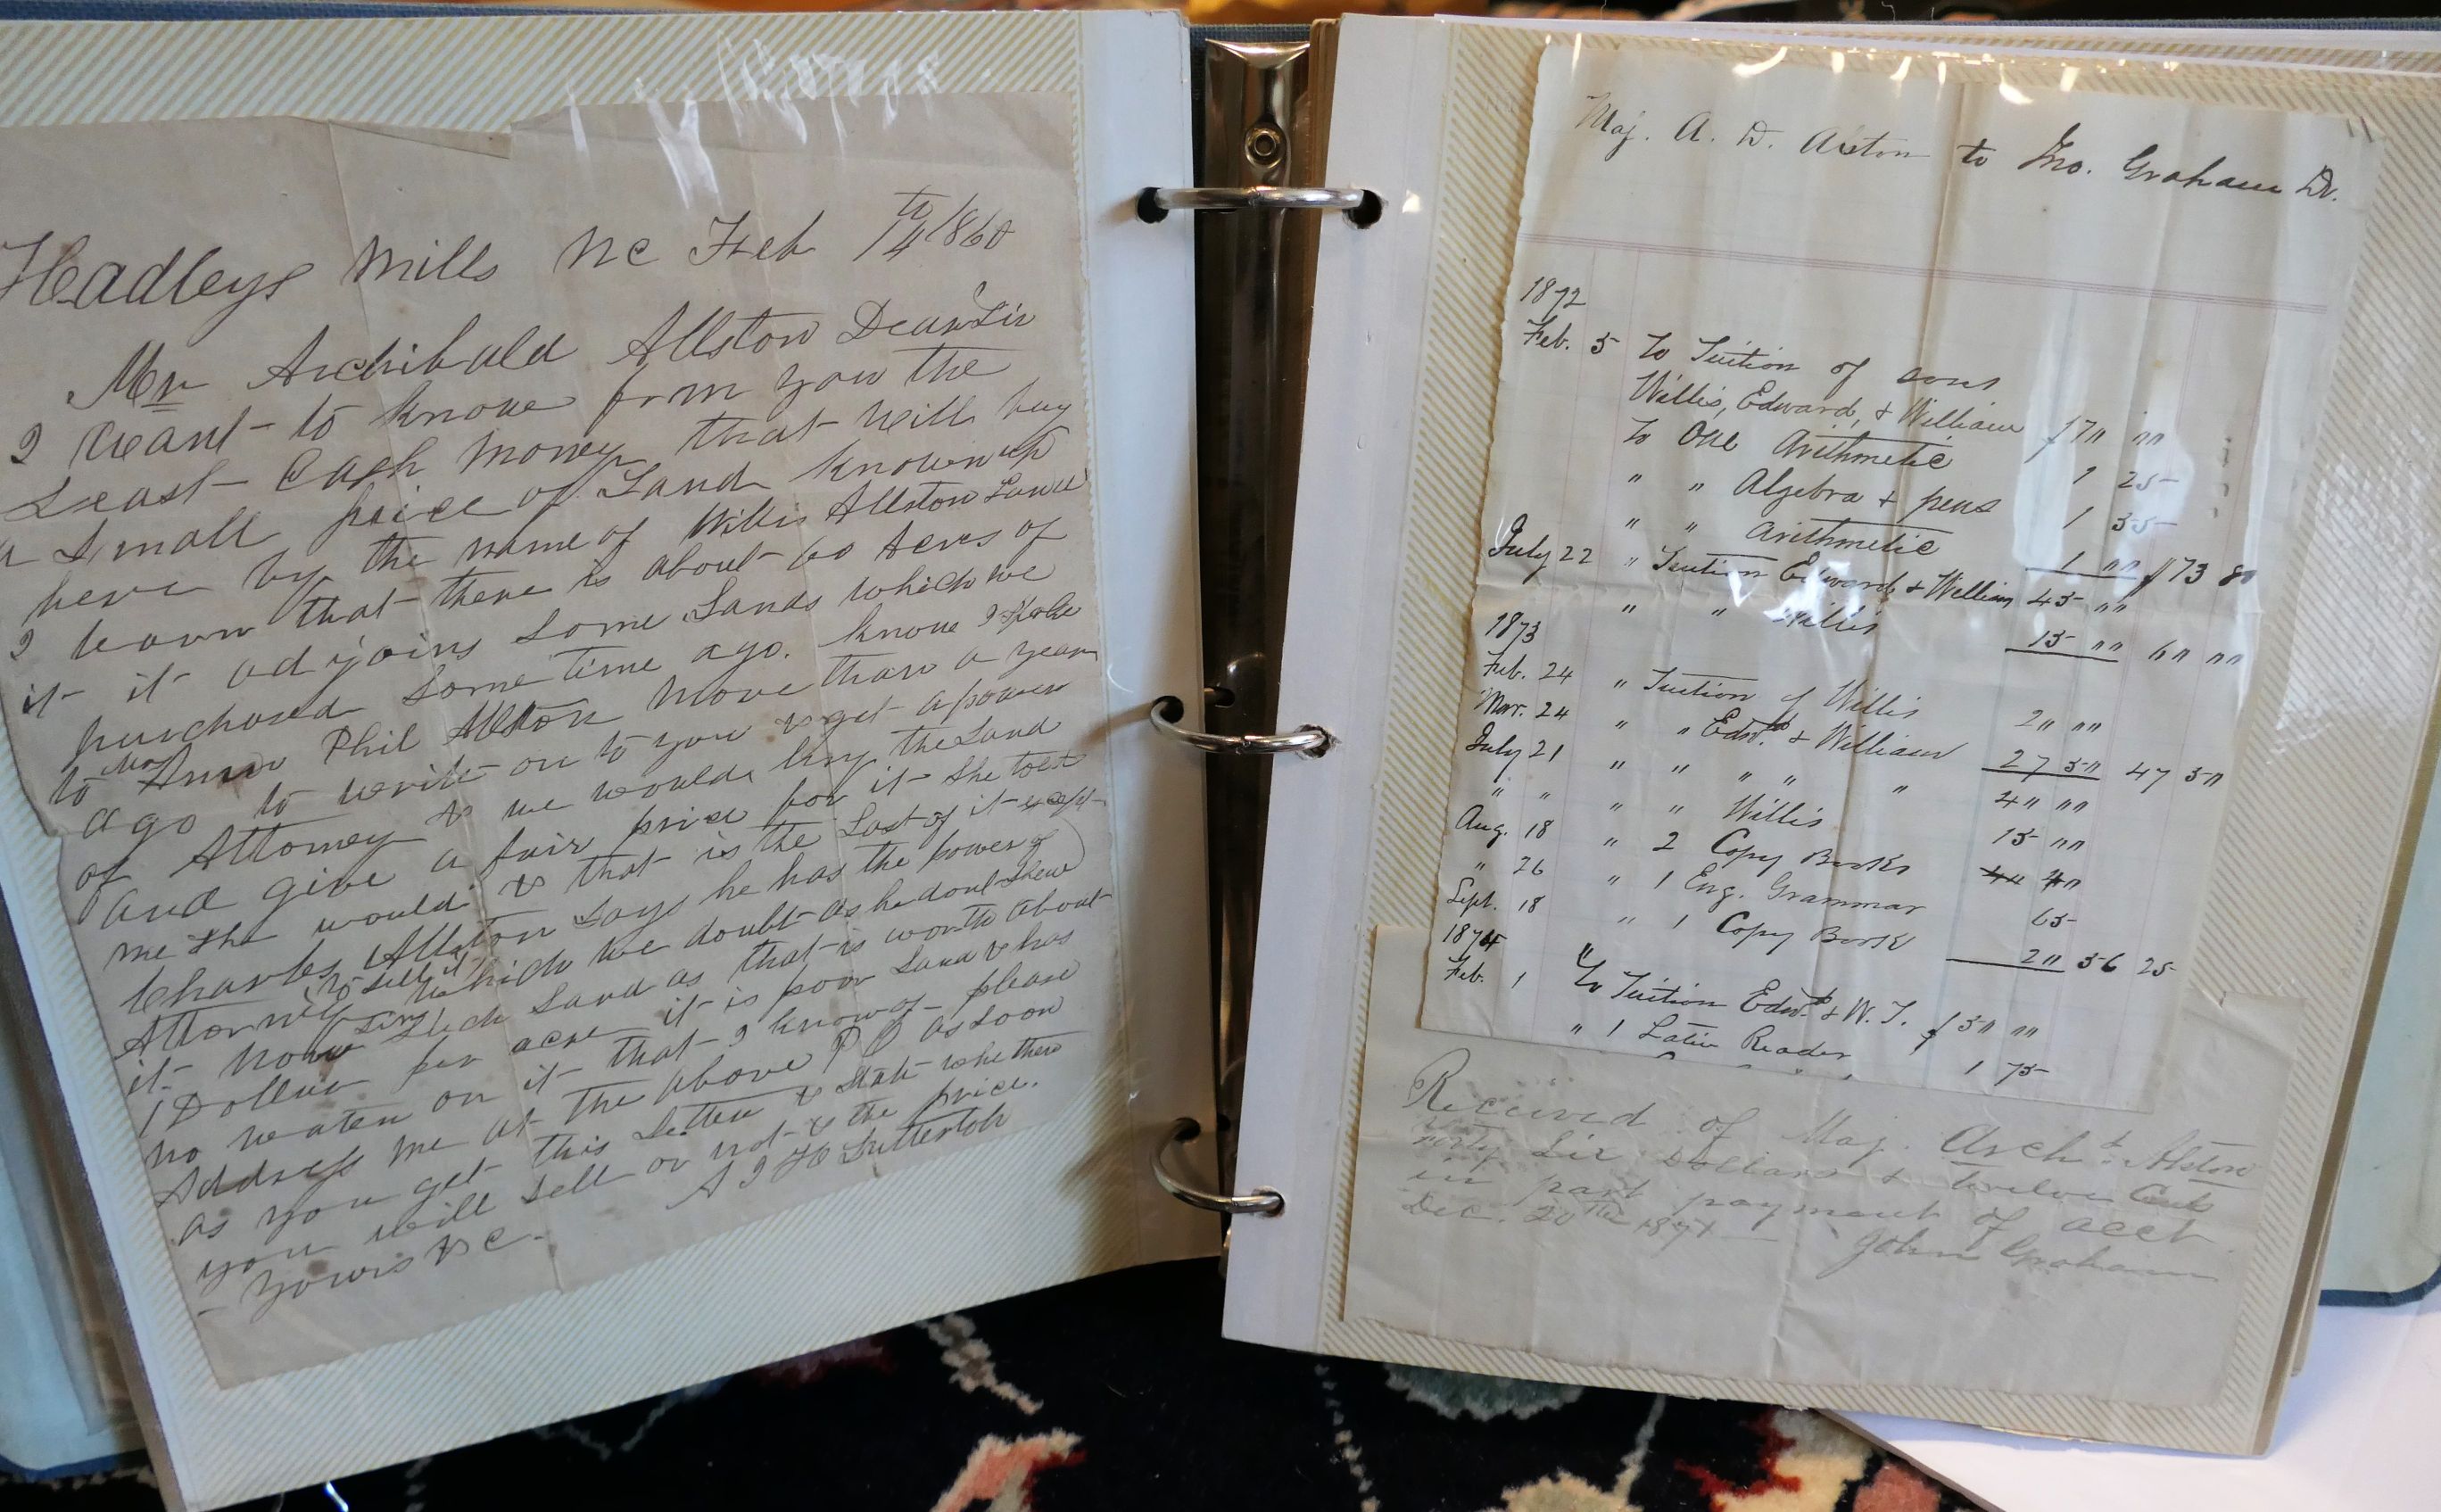 Headleys Mills NC Feb 14th 1860
Mr Archibald Allston Dear Sir
I want to know from you the
Least Cash money that will buy
a Small peice of Land known up
here by the name of Willis Allston Land
I learn that there is about 60 Acres of
it it adjoins some Lands which we
purchased some time ago. know I spoke
to Mrs Phil Allston more than a year
ago to write on to you & get a power
of Attorney & we would buy the Land
and give a fair price for it She told
me She would & that is the Last of it except
Charles Allston says he has the power of
Attorney to sell it which we doubt as he dont shew
it now Such Land as that is worth about
1 Dollar per acre it is poor Land & has
no water on it that I know of please
Address me at the above P O as soon
as you get this Letter & State whether
you will sell or not & the price.
Yours &c.
Maj. A. D. Alston to Jno. Graham Dr.
1872
Feb. 5 To Tuition of sons
Willis, Edward, & William $70 00
To One Arithmetic 1 25
" " Algebra & pens 1 55
" " Arithmetic 1 00 $73 80
July 22 " Tuition Edward & William 45 00
" " Willis 15 00 60 00
1873
Feb. 24 " Tuition of Willis 20 00
Mar. 24 " " Edwd. & William 27 50 47 50
July 21 " " " " " 40 00
" " " " Willis 15 00
Aug. 18 " 2 Copy Books 40
" 26 " 1 Eng. Grammar 65
Sept. 18 " 1 Copy Book 20 56 25
1874
Feb. 1 " To Tuition Edwd. & W. T. $50 00
" 1 Latin Reader, 1 75
Received of Maj. Archd. Alston
Forty Six Dollars & twelve Cents
in part payment of acct.
Dec. 20th 1871 John Graham